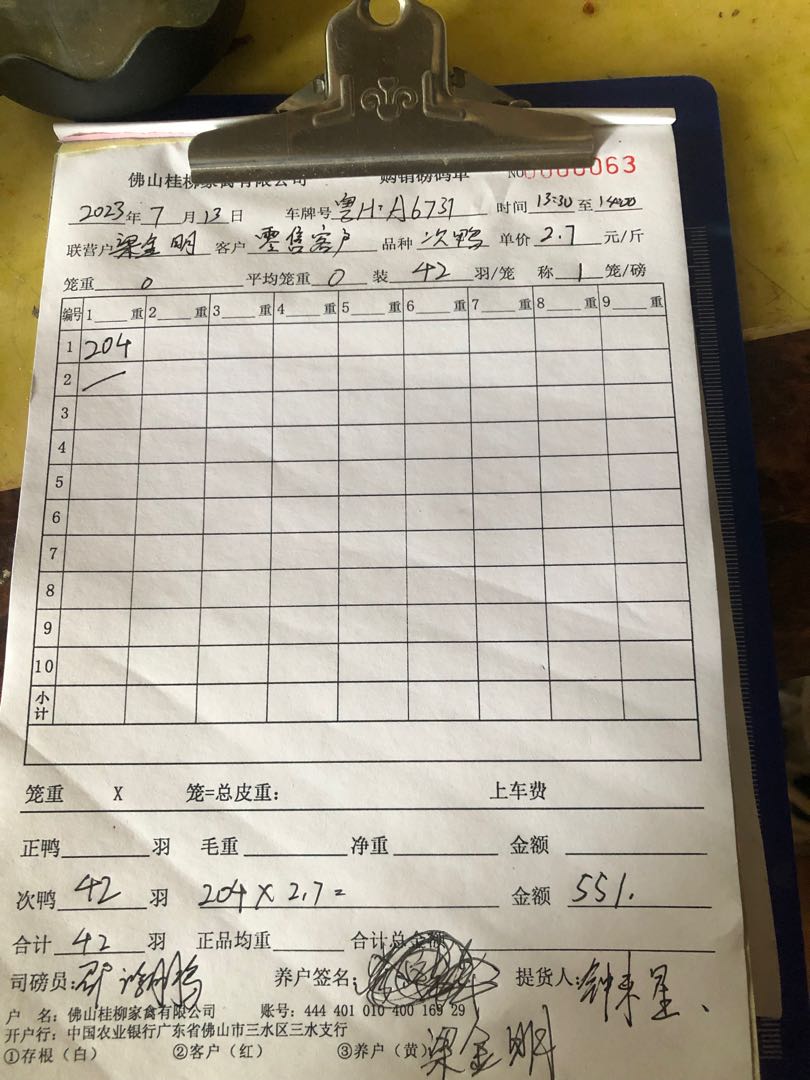 佛山桂柳家禽有限公司 购销磅码单 NO0000063
2023年 7 月 13 日 车牌号 粤H·A6731 时间 13:30 至 14:00
联营户 梁金明 客户 零售客户 品种 次鸭 单价 2.7 元/斤
笼重 0 平均笼重 0 装 42 羽/笼 称 1 笼/磅
编号 1 重 2 重 3 重 4 重 5 重 6 重 7 重 8 重 9 重
1 204
2 /
3
4
5
6
7
8
9
10
小计
笼重 X 笼=总皮重: 上车费
正鸭 羽 毛重 净重 金额
次鸭 42 羽 204 X 2.7 = 金额 551.
合计 42 羽 正品均重 合计总金额
司磅员: 养户签名: 提货人:
户 名: 佛山桂柳家禽有限公司 账号: 444 401 010 400 169 29
开户行: 中国农业银行广东省佛山市三水区三水支行
①存根(白) ②客户(红) ③养户(黄) 梁金明